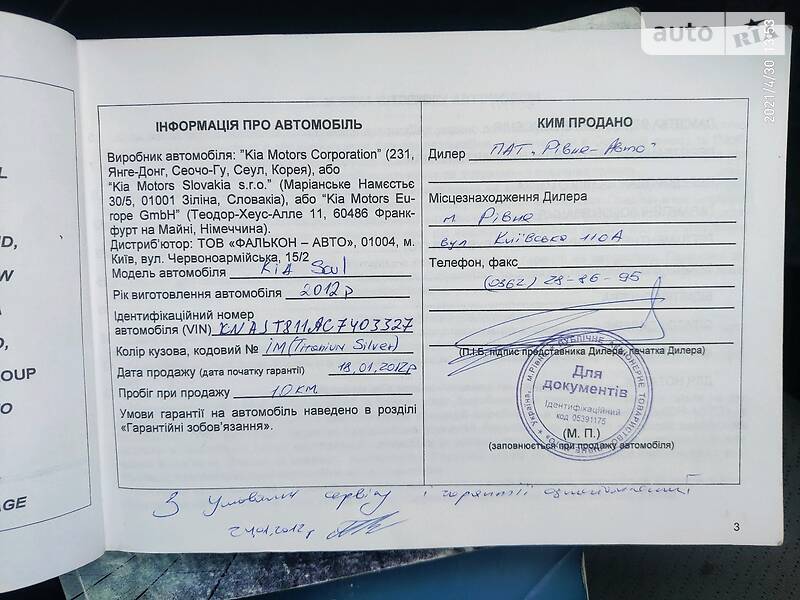 auto RIA
2021/4/30 13:53
ІНФОРМАЦІЯ ПРО АВТОМОБІЛЬ
Виробник автомобіля: "Kia Motors Corporation" (231,
Янге-Донг, Сеочо-Гу, Сеул, Корея), або
"Kia Motors Slovakia s.r.o." (Маріанське Намєстьє
30/5, 01001 Зіліна, Словакія), або "Kia Motors Eu-
rope GmbH" (Теодор-Хеус-Алле 11, 60486 Франк-
фурт на Майні, Німеччина).
Дистриб'ютор: ТОВ «ФАЛЬКОН – АВТО», 01004, м.
Київ, вул. Червоноармійська, 15/2
Модель автомобіля KIA Soul
Рік виготовлення автомобіля 2012 р
Ідентифікаційний номер
автомобіля (VIN) KNAJT811AC7403327
Колір кузова, кодовий № IM (Titanium Silver)
Дата продажу (дата початку гарантії) 18.01.2012р
Пробіг при продажу 10 км
Умови гарантії на автомобіль наведено в розділі
«Гарантійні зобов'язання».
КИМ ПРОДАНО
Дилер ПАТ "Рівне-Авто"
Місцезнаходження Дилера
м. Рівне
вул Київська 110А
Телефон, факс
(0362) 28-86-95
(П.І.Б, підпис представника Дилера, печатка Дилера)
Для
документів
Ідентифікаційний
код 05391175
(М. П.)
(заповнюється при продажу автомобіля)
З умовами сервісу і гарантії ознайомлений
24.01.2012 р
3
L
ND,
W
A
D,
OUP
TO
AGE